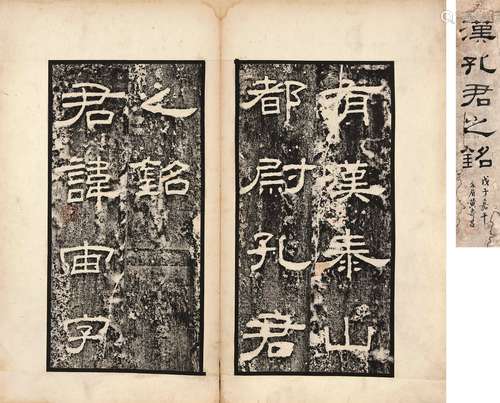 漢孔君之銘
戊子嘉平
有漢泰山
都尉孔君
之銘
君諱宙字